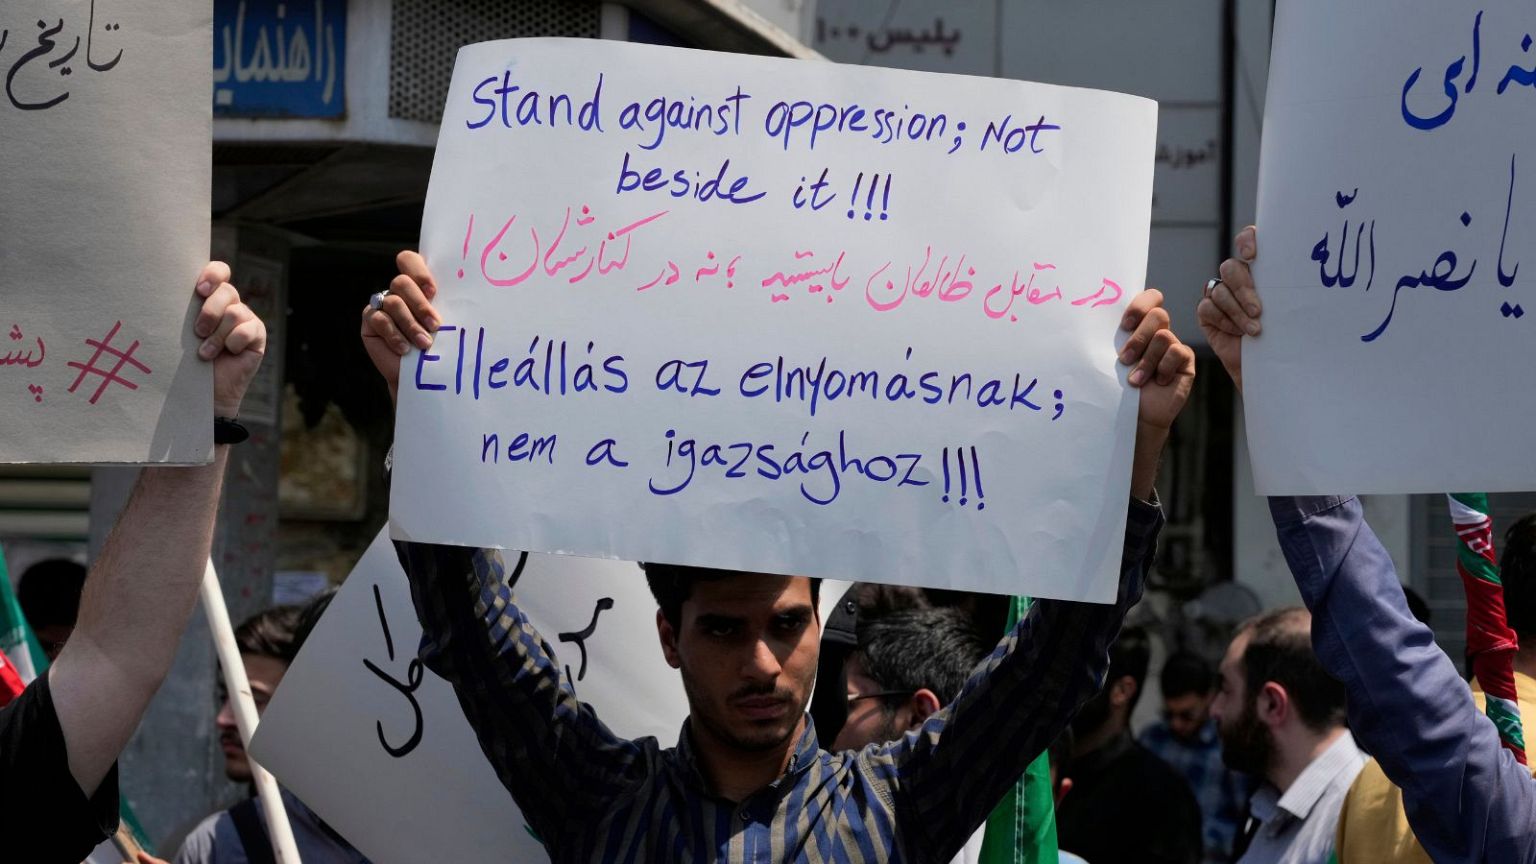 تاریخ
راهنمایی
پلیس +۱۰
آموزش
Stand against oppression; Not
beside it!!!
در مقابل ظالمان بایستید؛ نه در کنارشان!
Elleállás az elnyomásnak;
nem a igazsághoz!!!
# پشت
نه ای
یا نصر الله